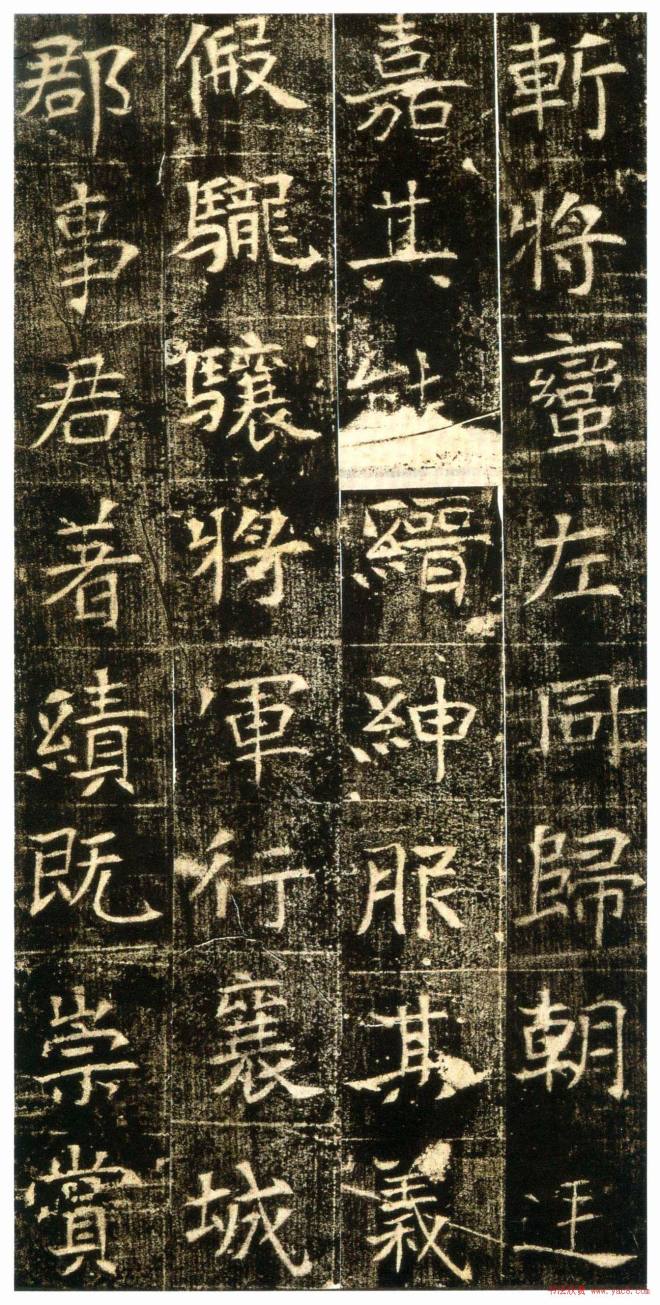 斬將蠻左同歸朝廷
嘉其 縉紳服其義
假驡驤將軍行襄城
郡事君著績既崇賞
书法欣赏 www.yac8.com